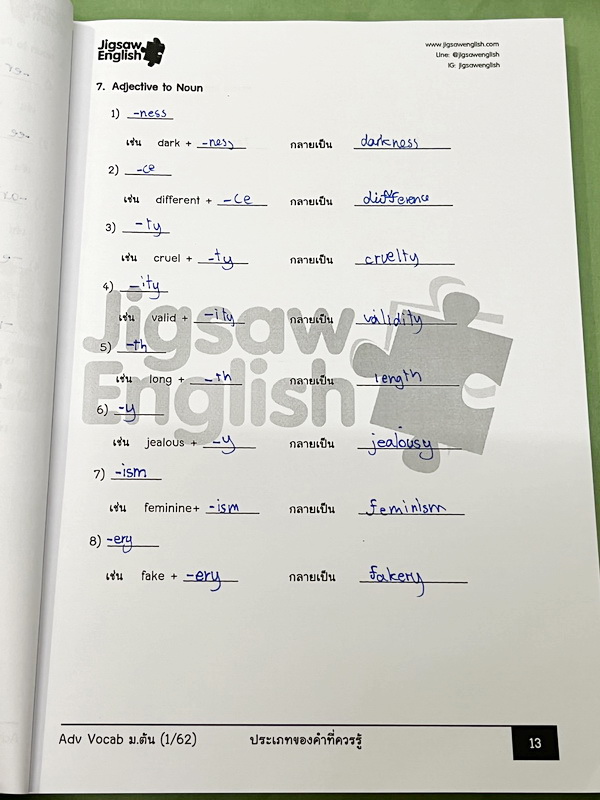 Jigsaw English
www.jigsawenglish.com
Line: @jigsawenglish
IG: jigsawenglish
7. Adjective to Noun
1) -ness
เช่น dark + -ness กลายเป็น darkness
2) -ce
เช่น different + -ce กลายเป็น difference
3) -ty
เช่น cruel + -ty กลายเป็น cruelty
4) -ity
เช่น valid + -ity กลายเป็น validity
5) -th
เช่น long + -th กลายเป็น length
6) -y
เช่น jealous + -y กลายเป็น jealousy
7) -ism
เช่น feminine+ -ism กลายเป็น feminism
8) -ery
เช่น fake + -ery กลายเป็น fakery
Jigsaw English
Adv Vocab ม.ต้น (1/62) ประเภทของคำที่ควรรู้ 13